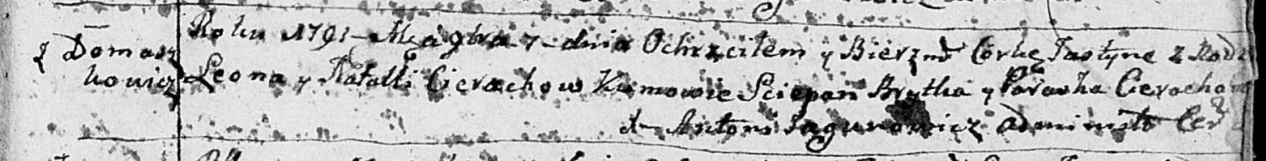 Z Domasz
kowicz
Roku 1791 Mca 9bra 7 dnia Ochrzciłem y Bierzm Corkę Jastynę z Rodz
Leona y Natalli Cierachow Kumowie Sciepan Brytka y Paraska Cierachow
X Antoni Jagunowicz administr Cer